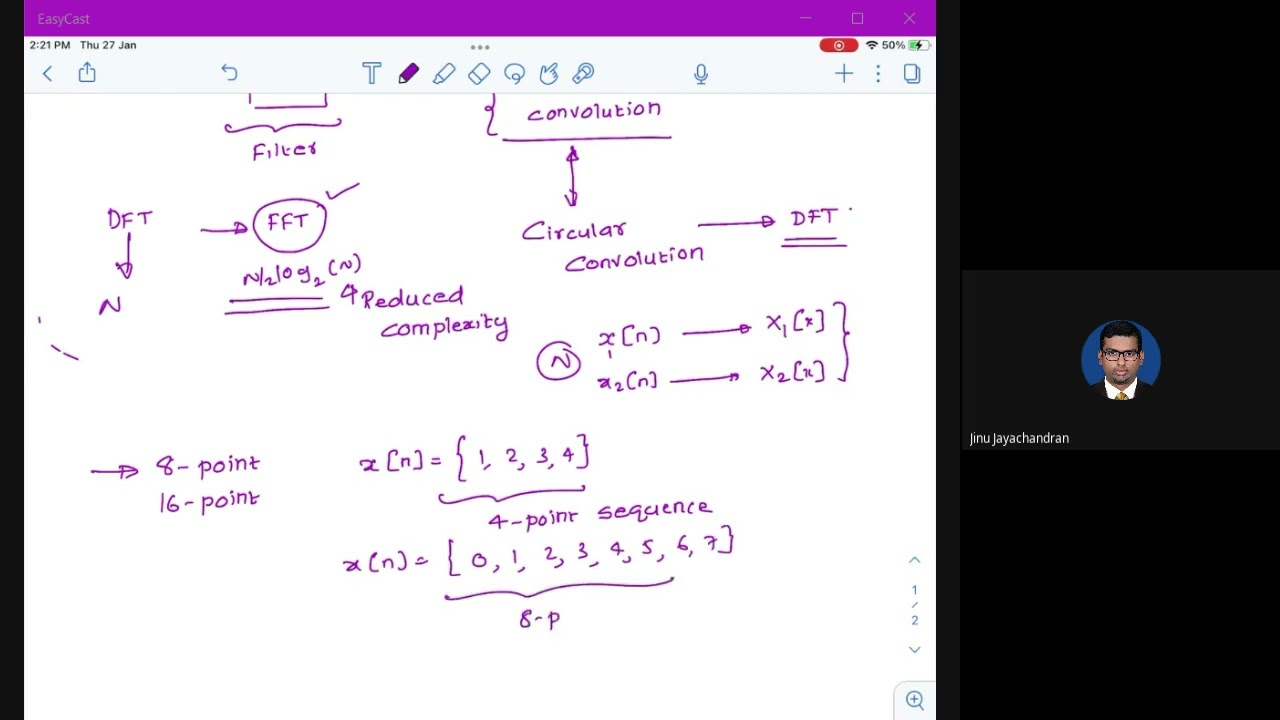 EasyCast
2:21 PM Thu 27 Jan
50%
convolution
Filter
DFT
FFT
Circular
Convolution
DFT
N/2 log₂(N)
Reduced
complexity
N
N
x₁[n]
X₁[k]
x₂[n]
X₂[k]
Jinu Jayachandran
8-point
16-point
x[n] = {1, 2, 3, 4}
4-point sequence
x(n) = [0, 1, 2, 3, 4, 5, 6, 7]
8-p
1
/
2